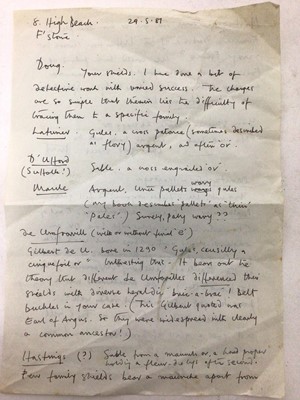 8. High Beach. 29.5.81
F'stowe
Doug.
Your shields. I have done a bit of
detective work with varied success. The charges
are so simple that therein lies the difficulty of
tracing them to a specific family.
Latimer. Gules, a cross patonce (sometimes described
as flory) argent, and after or.
D'Ufford Sable, a cross engrailed or
(Suffolk!)
Maule Argent, three pallets wavy gules
(my book describes 'pallets' as their
'pales'.) Surely, paly wavy??
de Umfraville (with or without final 'E')
Gilbert de U. born in 1290 "Gules, crusilly a
cinquefoil or" interesting this. It bears out the
theory that different de Umfravilles differenced their
shields with diverse heraldic bric-a-brac! Belt
buckles in your case. (This Gilbert quoted was
Earl of Angus. So they were widespread with clearly
a common ancestor!)
Hastings (?) Sable from a maunche or, a hand proper
holding a fleur-de-lys after the second.
Few family shields bear a maunche apart from